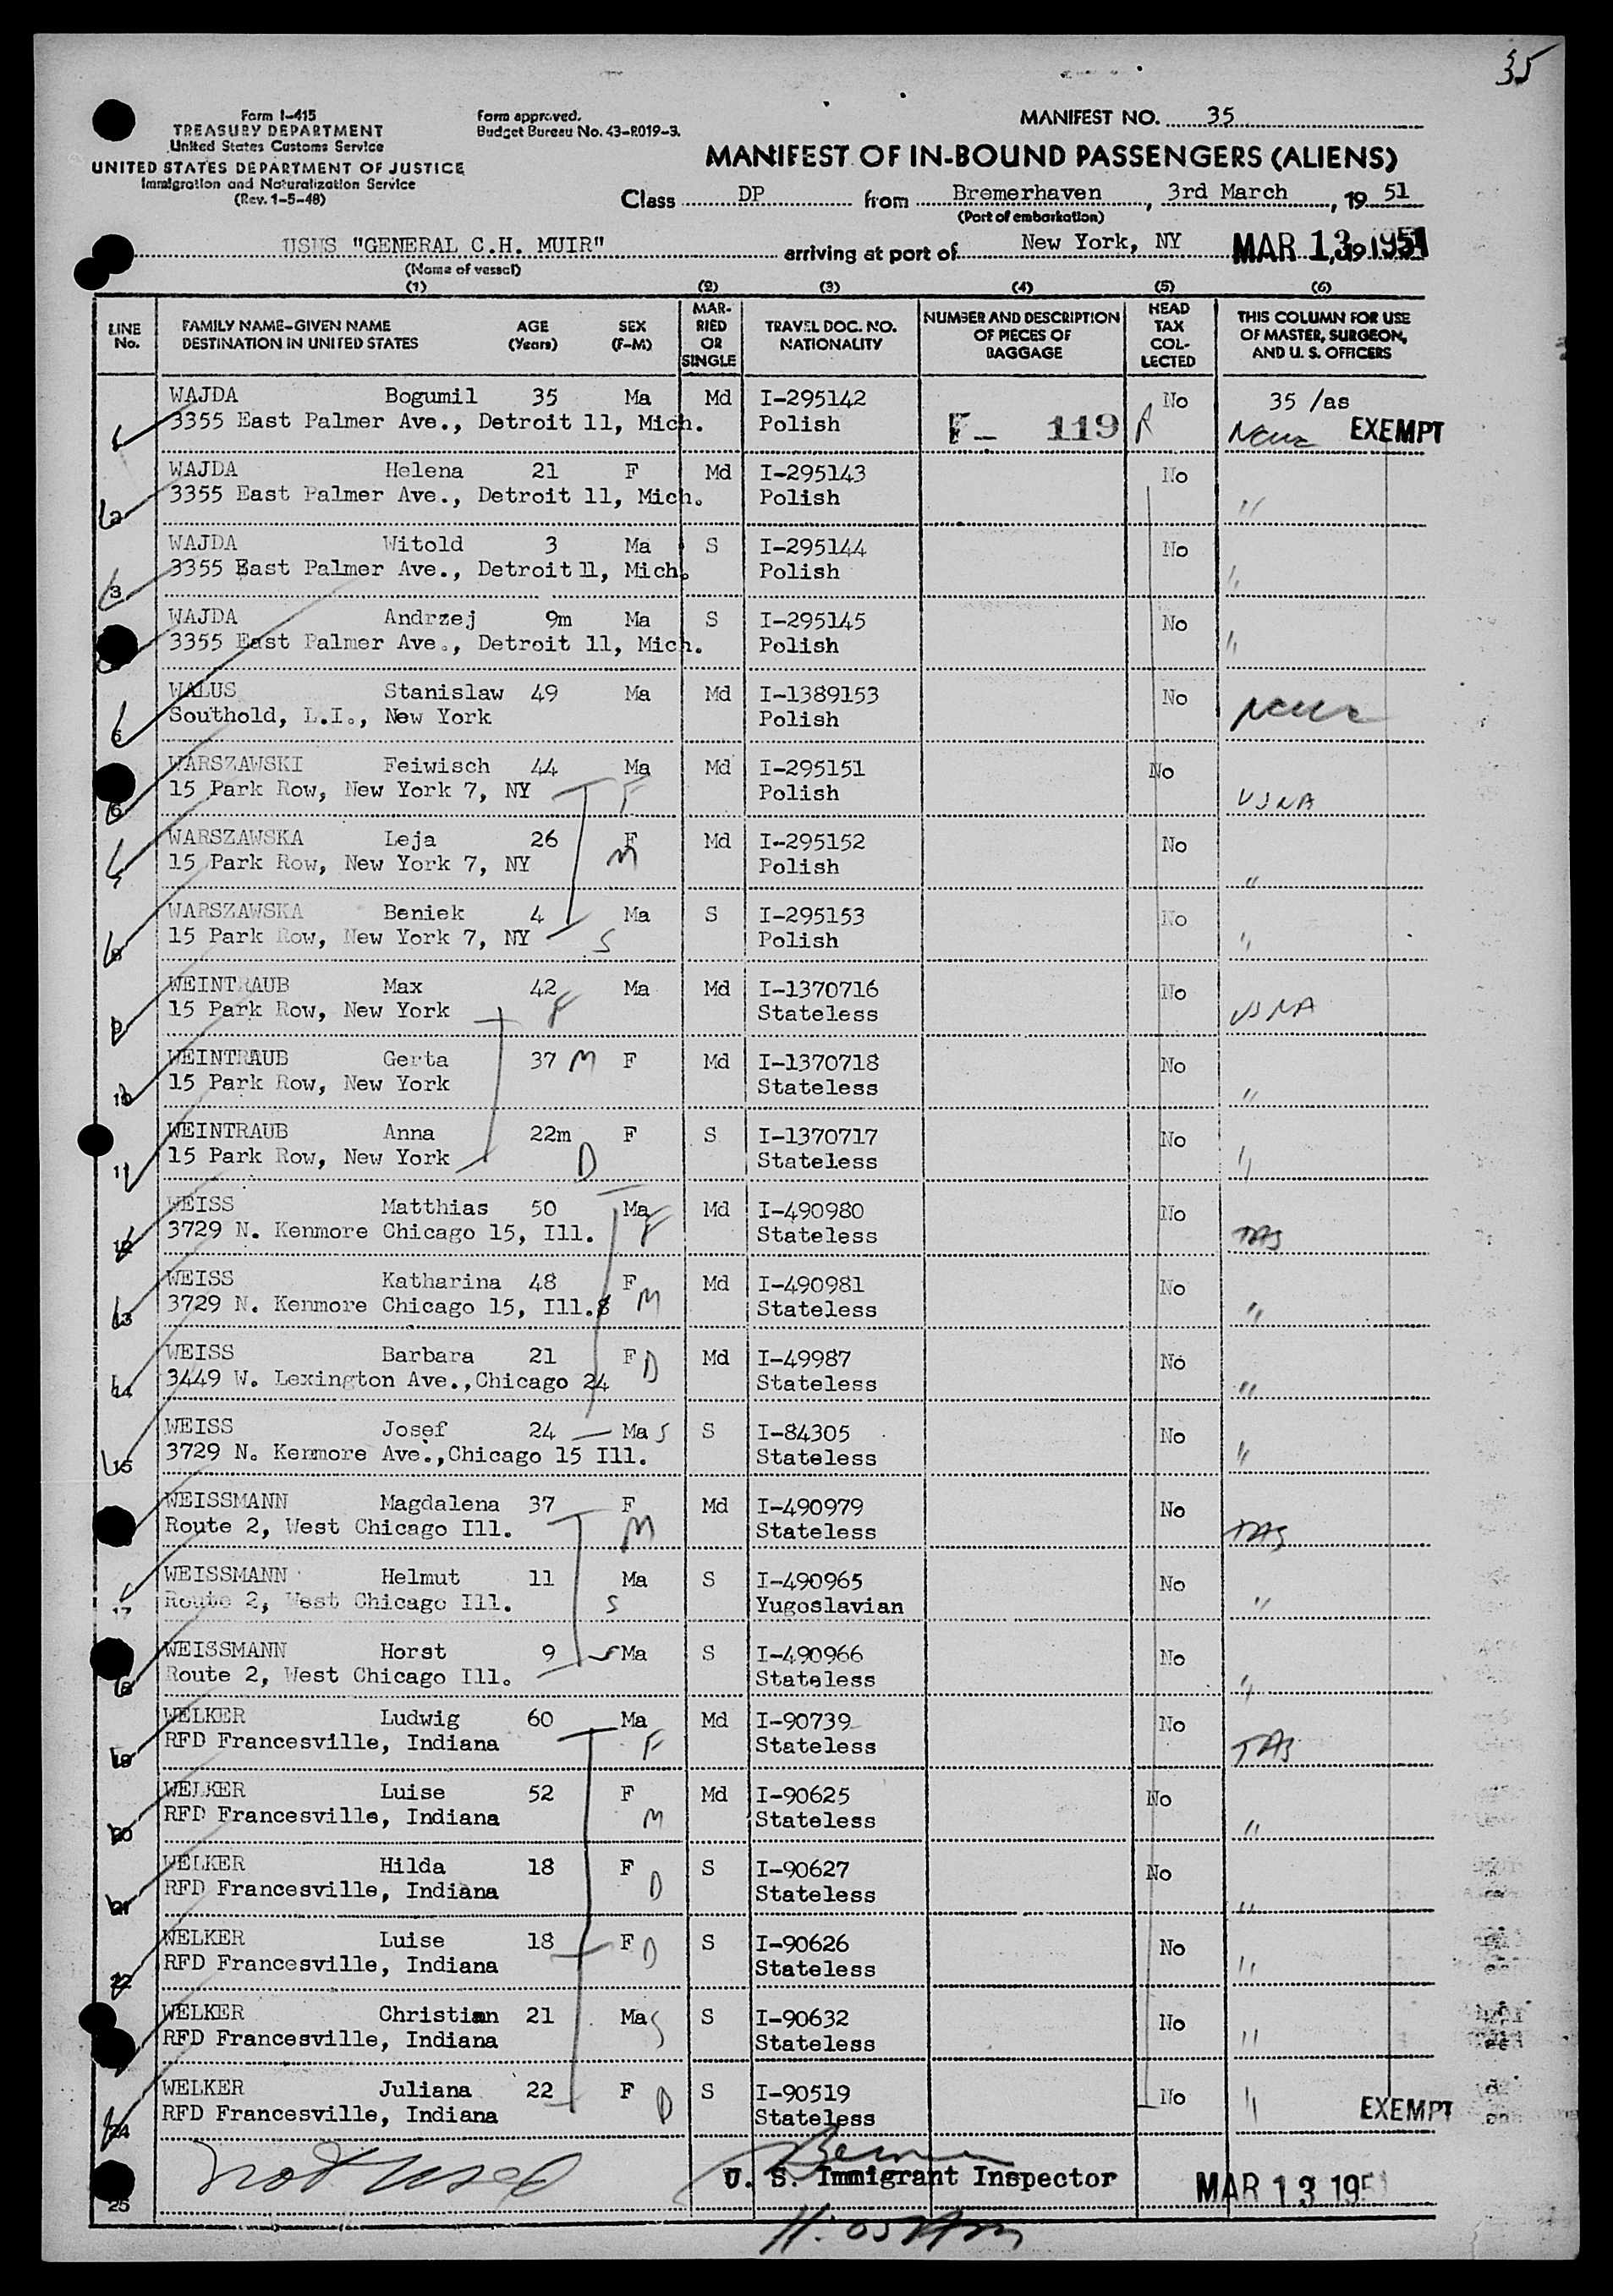 35
Form I-415
TREASURY DEPARTMENT
United States Customs Service
UNITED STATES DEPARTMENT OF JUSTICE
Immigration and Naturalization Service
(Rev. 1-5-48)
Form approved.
Budget Bureau No. 43-R019-3.
MANIFEST NO. 35
MANIFEST OF IN-BOUND PASSENGERS (ALIENS)
Class DP from Bremerhaven, 3rd March, 19 51
(Port of embarkation)
USNS "GENERAL C.H. MUIR" arriving at port of New York, NY MAR 13 1951
(Name of vessel)
(1) (2) (3) (4) (5) (6)
LINE No. FAMILY NAME-GIVEN NAME DESTINATION IN UNITED STATES AGE (Years) SEX (F-M) MARRIED OR SINGLE TRAVEL DOC. NO. NATIONALITY NUMBER AND DESCRIPTION OF PIECES OF BAGGAGE HEAD TAX COLLECTED THIS COLUMN FOR USE OF MASTER, SURGEON, AND U. S. OFFICERS
WAJDA Bogumil 35 Ma Md I-295142 No 35 /as
3355 East Palmer Ave., Detroit 11, Mich. Polish F- 119 R NCWC EXEMPT
WAJDA Helena 21 F Md I-295143 No
2 3355 East Palmer Ave., Detroit 11, Mich. Polish "
WAJDA Witold 3 Ma S I-295144 No
3 3355 East Palmer Ave., Detroit 11, Mich. Polish "
WAJDA Andrzej 9m Ma S I-295145 No
3355 East Palmer Ave., Detroit 11, Mich. Polish "
WALUS Stanislaw 49 Ma Md I-1389153 No
5 Southold, L.I., New York Polish NCWC
WARSZAWSKI Feiwisch 44 Ma Md I-295151 No
6 15 Park Row, New York 7, NY F Polish USNA
WARSZAWSKA Leja 26 F Md I-295152 No
7 15 Park Row, New York 7, NY M Polish "
WARSZAWSKA Beniek 4 Ma S I-295153 No
8 15 Park Row, New York 7, NY S Polish "
WEINTRAUB Max 42 Ma Md I-1370716 No
9 15 Park Row, New York F Stateless USNA
WEINTRAUB Gerta 37 M F Md I-1370718 No
10 15 Park Row, New York Stateless "
WEINTRAUB Anna 22m F S I-1370717 No
11 15 Park Row, New York D Stateless "
WEISS Matthias 50 Ma Md I-490980 No
12 3729 N. Kenmore Chicago 15, Ill. F Stateless TAS
WEISS Katharina 48 F Md I-490981 No
13 3729 N. Kenmore Chicago 15, Ill.8 M Stateless "
WEISS Barbara 21 F D Md I-49987 No
14 3449 W. Lexington Ave.,Chicago 24 Stateless "
WEISS Josef 24 Ma S S I-84305 No
15 3729 N. Kenmore Ave.,Chicago 15 Ill. Stateless "
WEISSMANN Magdalena 37 F Md I-490979 No
Route 2, West Chicago Ill. M Stateless TAS
WEISSMANN Helmut 11 Ma S I-490965 No
17 Route 2, West Chicago Ill. S Yugoslavian "
WEISSMANN Horst 9 S Ma S I-490966 No
18 Route 2, West Chicago Ill. Stateless "
WELKER Ludwig 60 Ma Md I-90739 No
19 RFD Francesville, Indiana F Stateless TAS
WELKER Luise 52 F Md I-90625 No
20 RFD Francesville, Indiana M Stateless "
WELKER Hilda 18 F S I-90627 No
21 RFD Francesville, Indiana D Stateless "
WELKER Luise 18 F D S I-90626 No
22 RFD Francesville, Indiana Stateless "
WELKER Christian 21 Ma S S I-90632 No
RFD Francesville, Indiana Stateless "
WELKER Juliana 22 F D S I-90519 No
24 RFD Francesville, Indiana Stateless " EXEMPT
25 not used
U. S. Immigrant Inspector MAR 13 195